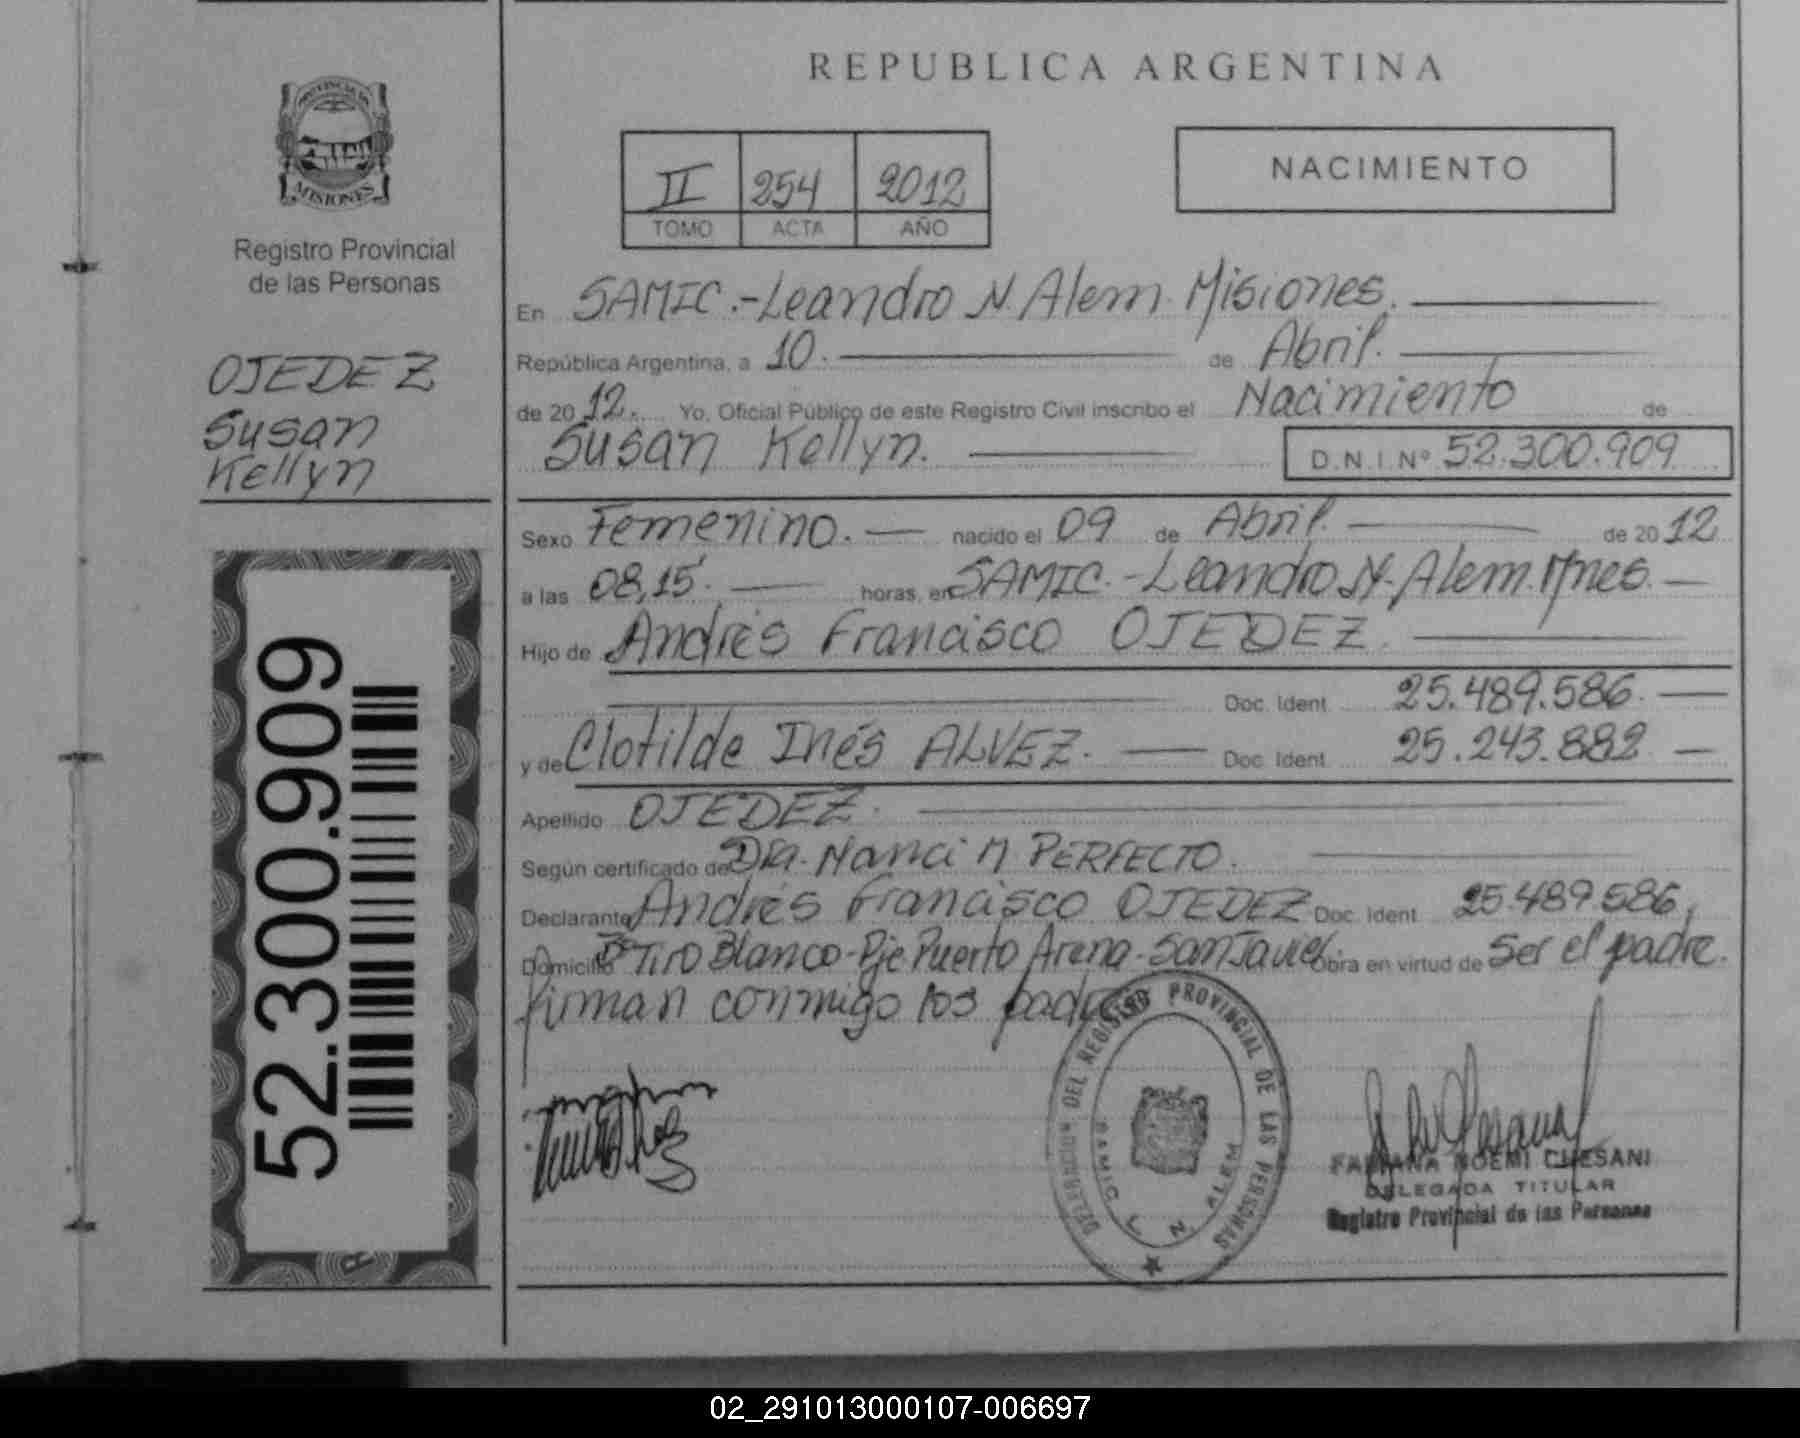 REPUBLICA ARGENTINA
PROVINCIA DE
MISIONES
Registro Provincial
de las Personas
OJEDEZ
Susan
Kellyn
52.300.909
II 254 2012
TOMO ACTA AÑO
NACIMIENTO
En SAMIC.-Leandro N. Alem. Misiones.
República Argentina, a 10. de Abril.
de 2012. Yo, Oficial Público de este Registro Civil inscribo el Nacimiento de
Susan Kellyn. D.N.I. Nº 52.300.909
Sexo Femenino. nacido el 09 de Abril. de 2012
a las 08,15. horas, en SAMIC.-Leandro N. Alem. Mnes.
Hijo de Andrés Francisco OJEDEZ.
Doc. Ident. 25.489.586.
y de Clotilde Inés ALVEZ. Doc. Ident. 25.243.882
Apellido OJEDEZ.
Según certificado de Dra. Nanci M PERFECTO.
Declarante Andrés Francisco OJEDEZ Doc. Ident. 25.489.586,
Domicilio Bº Tiro Blanco-Pje Puerto Arena-San Javier Obra en virtud de Ser el padre.
firman conmigo los padres
DELEGACION DEL REGISTRO PROVINCIAL DE LAS PERSONAS
SAMIC L N ALEM
FABIANA NOEMI CHESANI
DELEGADA TITULAR
Registro Provincial de las Personas
02_291013000107-006697